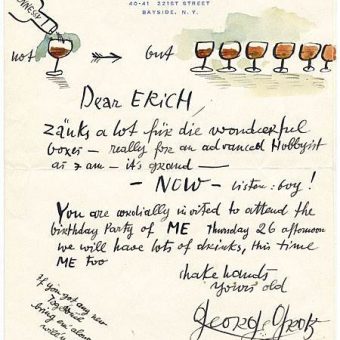 40-41 221ST STREET
BAYSIDE, N.Y.
HENNESSY
not → but
Dear ERiCH,
zänks a lot für die wonderful
boxes — really for an advanced Hobbyist
as I am — it's grand —
— NOW — listen: boy!
You are cordially invited to attend the
birthday Party of ME Thursday 26 afternoon
we will have lots of drinks, this time
ME too
shake hands
yours old
George Grosz
If you got any new
bring em along